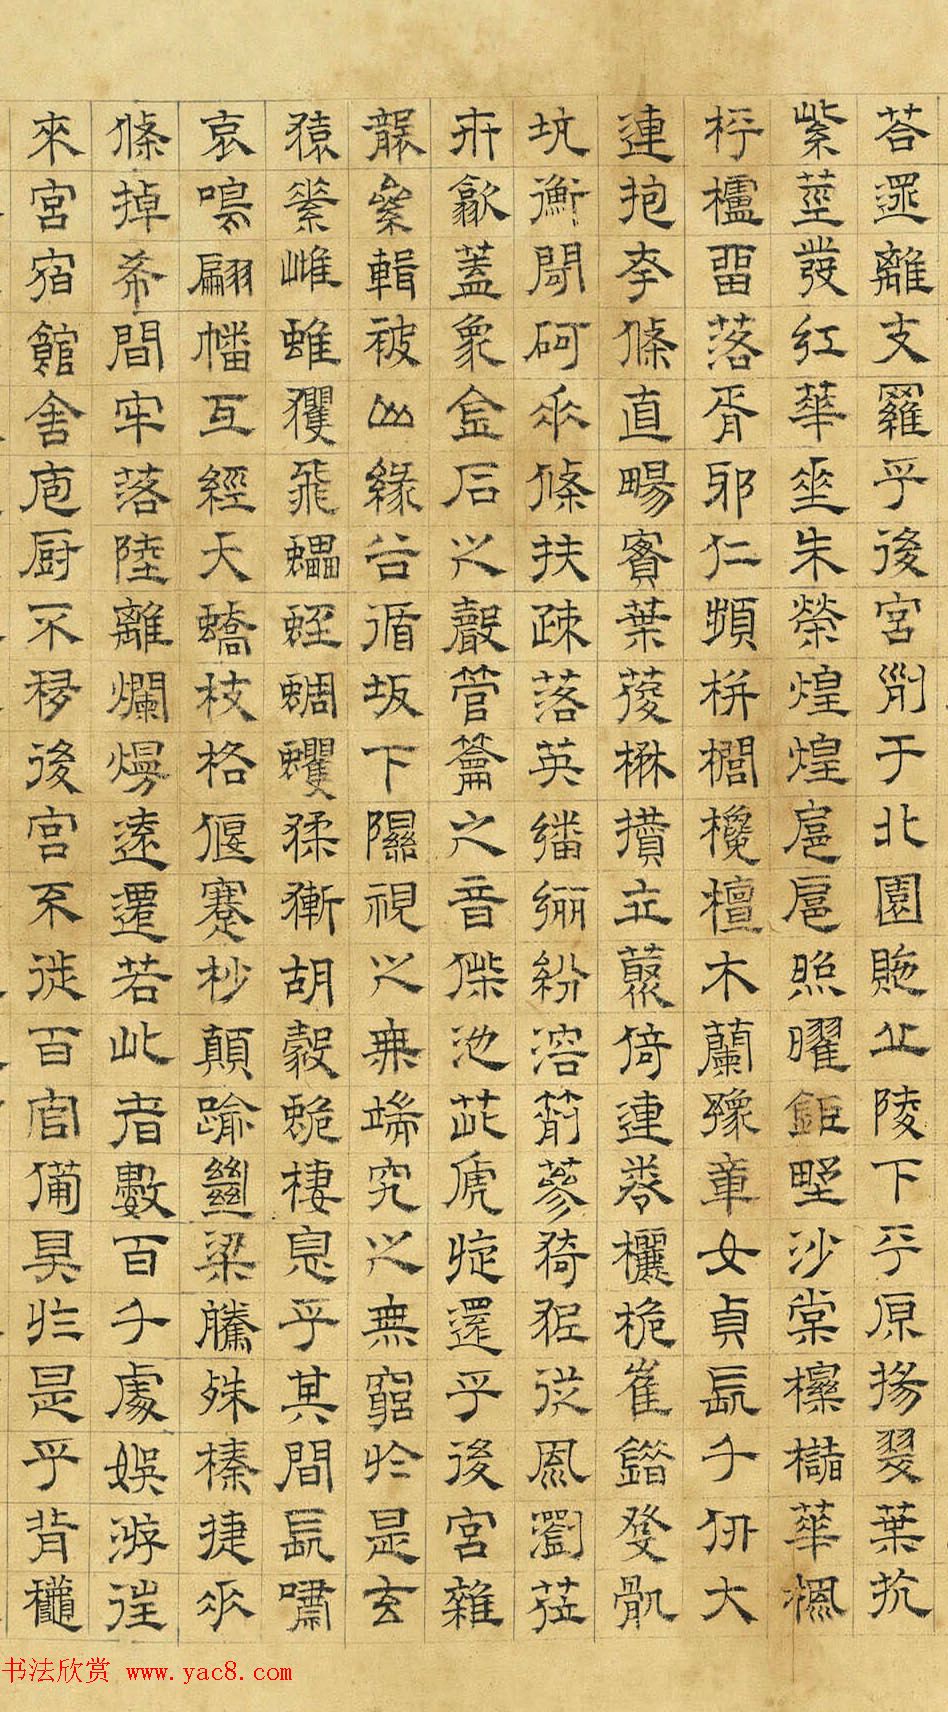 荅遝離支羅乎後宮列于北園貤丘陵下平原揚翠葉抗
紫莖發紅華垂朱榮煌煌扈扈照曜鉅野沙棠櫟櫧華楓
枰櫨留落胥邪仁頻栟櫚欃檀木蘭豫章女貞長千仞大
連抱夸條直暢實葉葰楙攢立叢倚連卷欐桅崔錯發骫
坑衡閜砢垂條扶疎落英繙纚紛溶箾蔘猗狔從風瀏莅
卉歙蓋象金石之聲管籥之音傑池茈虒旋還乎後宮雜
襲絫輯被山緣谷循坂下隰視之無端究之無窮於是玄
猿素雌蜼玃飛蠝蛭蜩蠼猱獑胡豰蛫棲息乎其間長嘯
哀鳴翩幡互經夭蟜枝格偃蹇杪顛踰絕梁騰殊榛捷垂
條掉希間牢落陸離爛熳遠遷若此者數百千處娛游往
來宮宿館舍庖厨不移後宮不徙百官備具於是乎背龝
书法欣赏 www.yac8.com